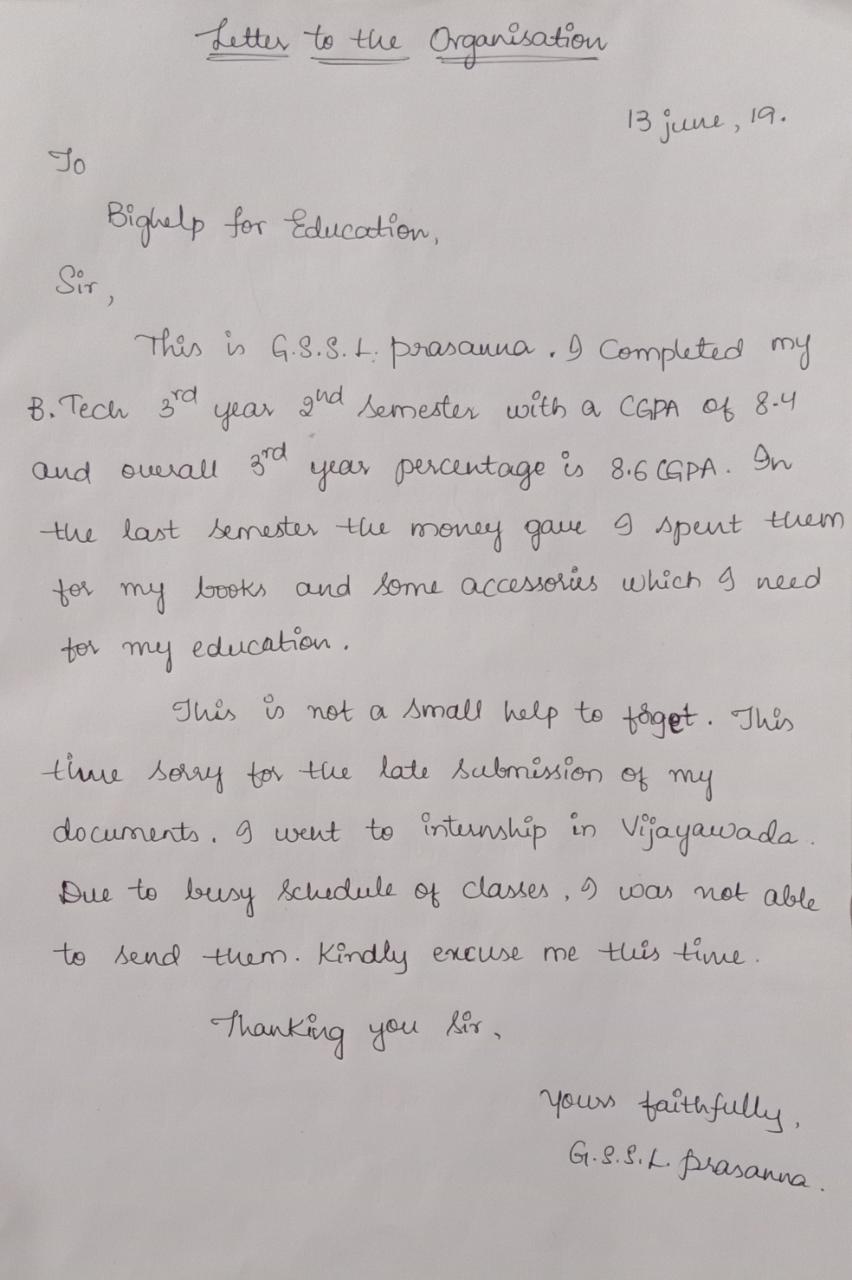 Letter to the Organisation
13 june, 19.
To
Bighelp for Education,
Sir,
This is G.S.S.L. prasanna. I Completed my
B.Tech 3rd year 2nd semester with a CGPA of 8.4
and overall 3rd year percentage is 8.6 CGPA. In
the last semester the money gave I spent them
for my books and some accessories which I need
for my education.
This is not a small help to forget. This
time sorry for the late submission of my
documents. I went to internship in Vijayawada.
Due to busy schedule of classes, I was not able
to send them. Kindly excuse me this time.
Thanking you sir,
yours faithfully,
G.S.S.L. prasanna.